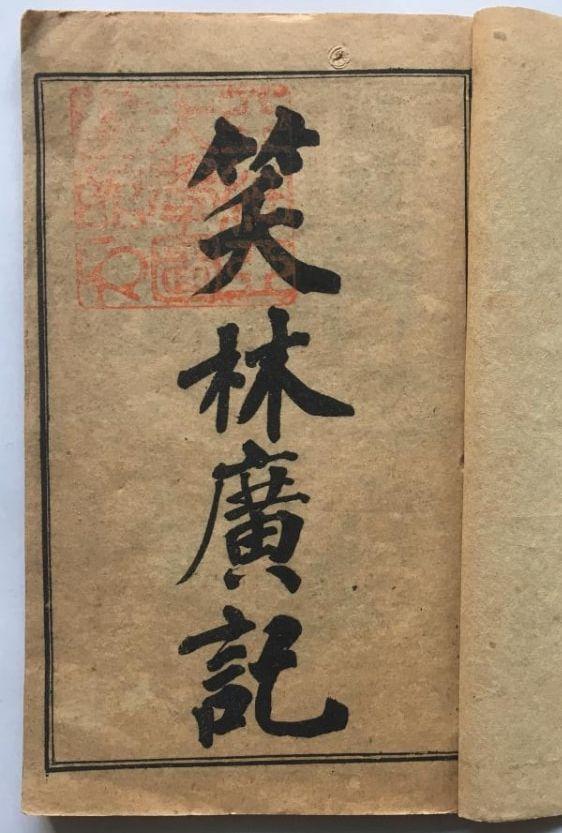 笑林廣記